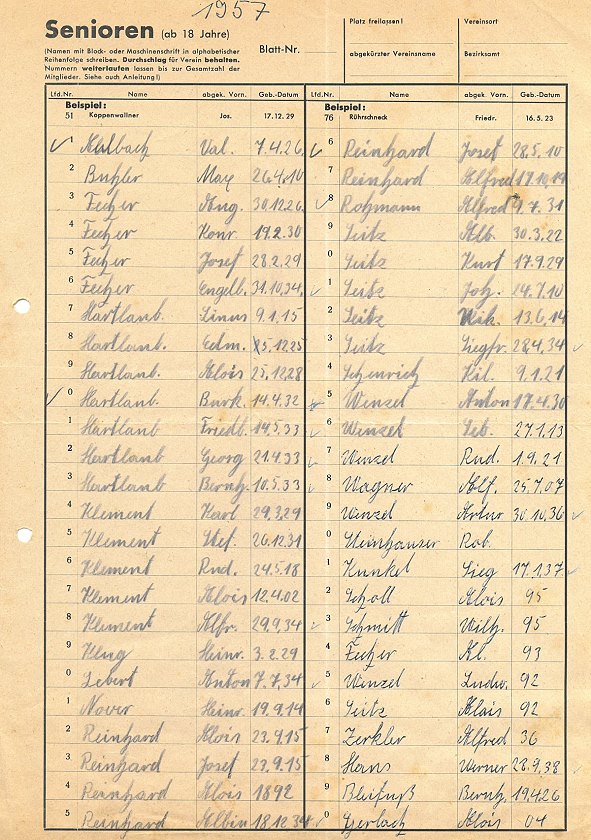 1957
Senioren (ab 18 Jahre)
(Namen mit Block- oder Maschinenschrift in alphabetischer
Reihenfolge schreiben. Durchschlag für Verein behalten.
Nummern weiterlaufen lassen bis zur Gesamtzahl der
Mitglieder. Siehe auch Anleitung!)
Blatt-Nr.
Platz freilassen!
abgekürzter Vereinsname
Vereinsort
Bezirksamt
Lfd.Nr. Name abgek. Vorn. Geb.-Datum
Beispiel:
51 Koppenwallner Jos. 17.12.29
1 Kulbach Val. 7.4.26
2 Buhler Max 26.4.10
3 Fecher Aug. 30.12.26
4 Fecher Konr. 19.2.30
5 Fecher Josef 28.2.29
6 Fecher Engelb. 31.10.34
7 Hartlaub Linus 9.1.15
8 Hartlaub. Edm. 25.12.25
9 Hartlaub. Alois 25.12.28
0 Hartlaub. Burk. 14.4.32
1 Hartlaub Friedb. 14.5.33
2 Hartlaub Georg 21.4.33
3 Hartlaub Bernh. 10.5.33
4 Klement Karl 29.3.29
5 Klement Stef. 26.12.31
6 Klement Rud. 24.5.18
7 Klement Alois 12.4.02
8 Klement Alfr. 29.9.34
9 Klug Heinr. 3.2.29
0 Lebert Anton 7.7.34
1 Nover Heinr. 19.9.14
2 Reinhard Alois 23.9.15
3 Reinhard Josef 23.9.15
4 Reinhard Alois 1892
5 Reinhard Albin 18.12.34
Lfd.Nr. Name abgek. Vorn. Geb.-Datum
Beispiel:
76 Rührschneck Friedr. 16.5.23
6 Reinhard Josef 28.5.10
7 Reinhard Alfred 17.10.19
8 Rohmann Alfred 9.7.31
9 Seitz Alb. 30.3.22
0 Seitz Kurt 17.9.29
1 Seitz Joh. 14.7.10
2 Seitz Nik. 13.6.14
3 Seitz Siegfr. 28.4.34
4 Schenrich Kil. 9.1.21
5 Wenzel Anton 17.4.30
6 Wenzel Seb. 27.1.13
7 Wenzel Rud. 1.9.21
8 Wagner Alf. 25.7.07
9 Wenzel Artur 30.10.36
0 Steinhauser Rob.
1 Kunkel Sieg 17.1.37
2 Scholl Alois 95
3 Schmitt Wilh. 95
4 Fecher Al. 93
5 Wenzel Ludw. 92
6 Seitz Alois 92
7 Zerkler Alfred 36
8 Hans Werner 28.9.38
9 Bleifuß Bernh. 19.4.26
0 Gerlach Alois 04